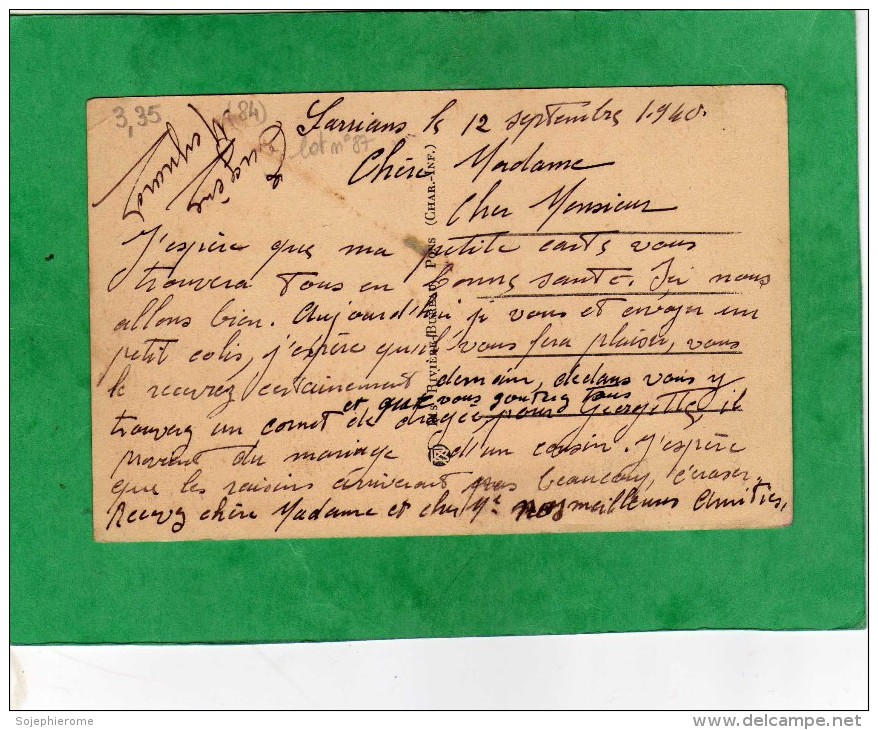 3,35
(84)
lot n° 87
Sarrians le 12 septembre 1940.
Chère Madame
Cher Monsieur
J'espère que ma petite carte vous
trouvera tous en bonne santé. Ici nous
allons bien. Aujourd'hui je vous et envoyer un
petit colis, j'espère qu'il vous fera plaisir, vous
le recevrez certainement demain, dedans vous y
et que vous goutrez tous
trouverez un cornet de dragée pour Georgette, il
provient du mariage d'un cousin. J'espère
que les raisins arriveront pas beaucoup écraser.
Recevez chère Madame et cher Mr nos meilleures Amitiés,
Eugène
Reynard
RIVIÈRE-BUREAU, PONS (CHAR.-INF.)
Sojephierome
www.delcampe.net